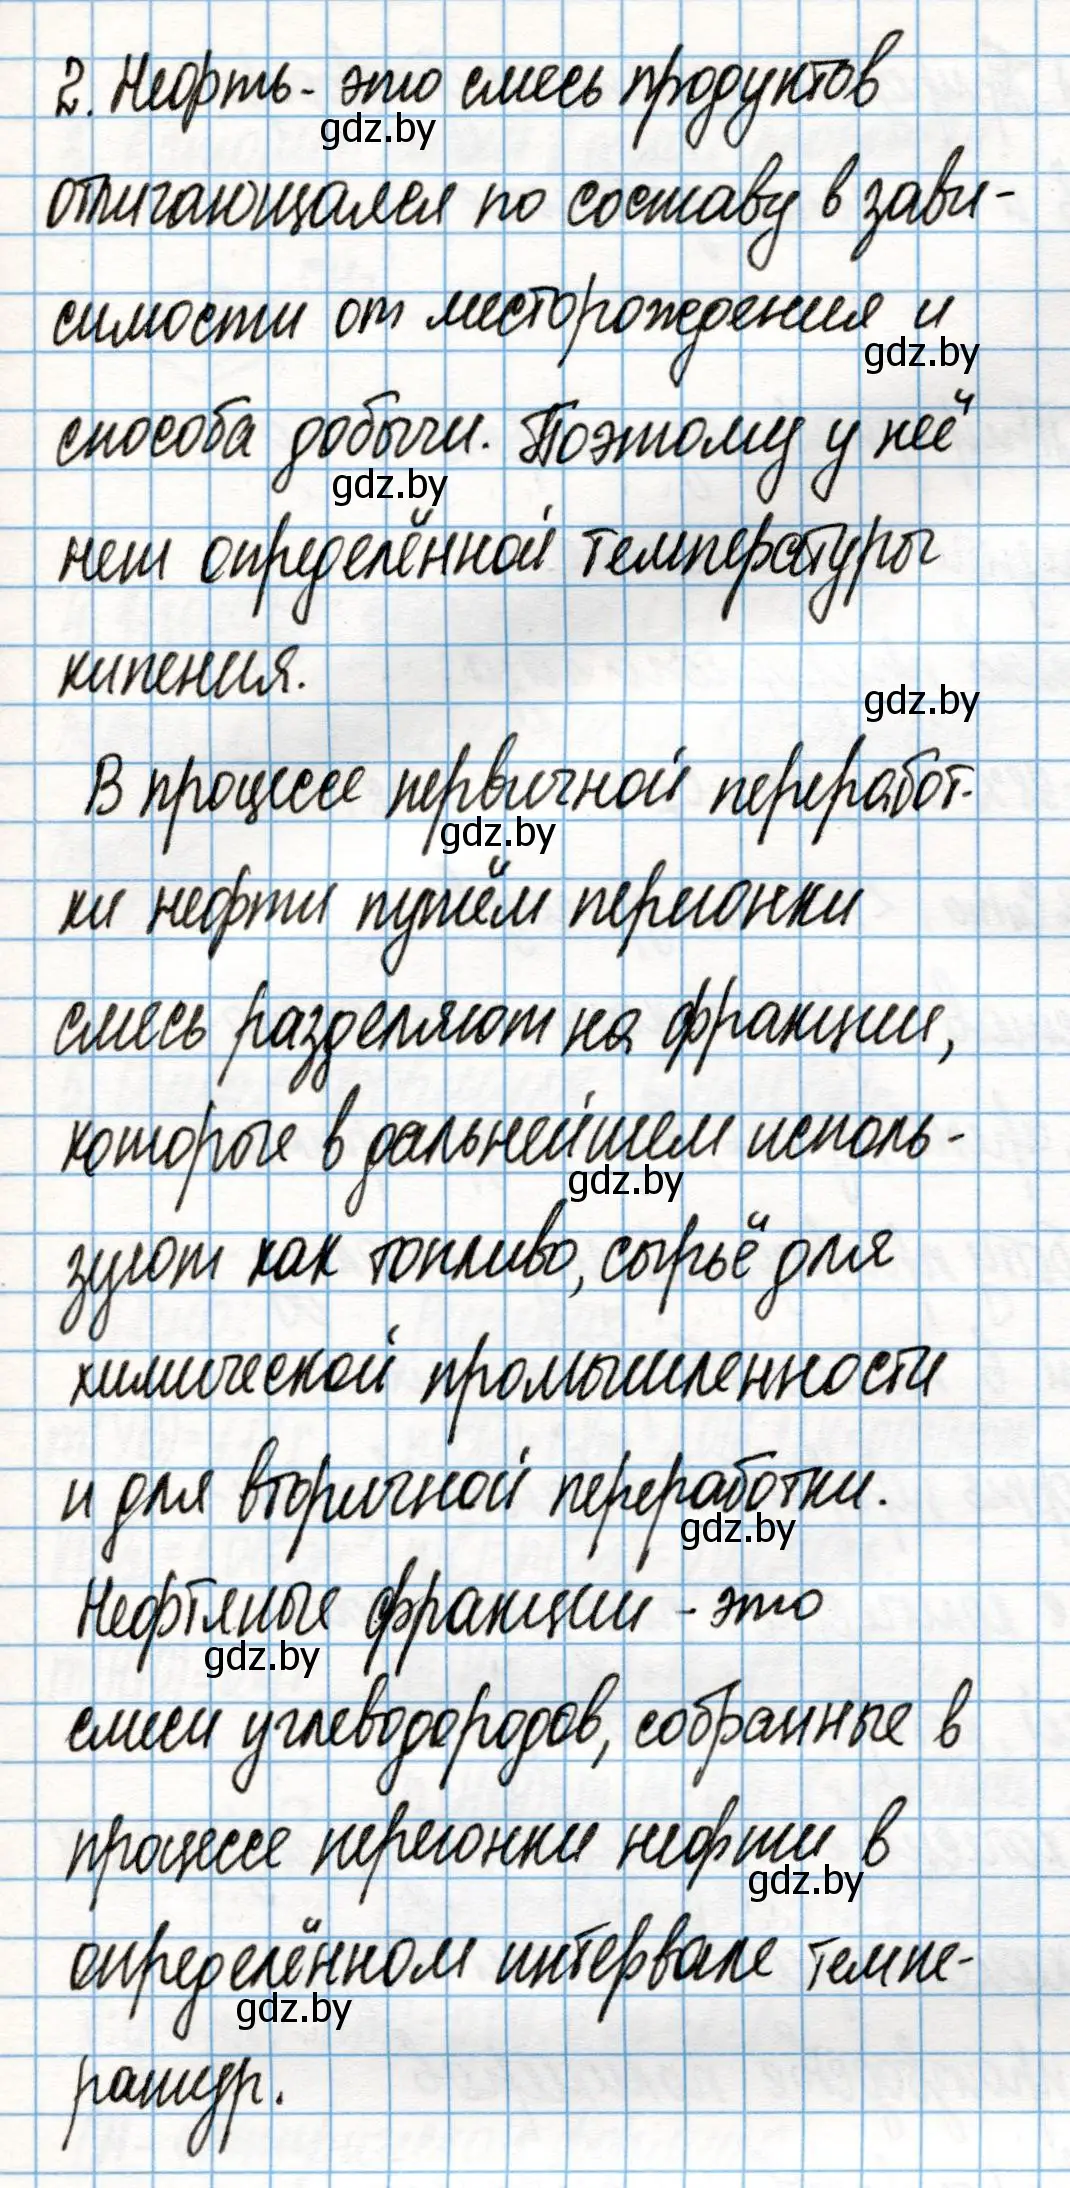 2. Нефть - это смесь продуктов
gdz.by
отличающаяся по составу в зави-
симости от месторождения и
gdz.by
способа добычи. Поэтому у неё
gdz.by
нет определённой температуры
кипения.
gdz.by
В процессе первичной переработ-
gdz.by
ки нефти путём перегонки
смесь разделяют на фракции,
которые в дальнейшем исполь-
gdz.by
зуют как топливо, сырьё для
химической промышленности
и для вторичной переработки.
gdz.by
Нефтяные фракции - это
gdz.by
смеси углеводородов, собранные в
процессе перегонки нефти в
gdz.by
определённом интервале темпе-
gdz.by
ратур.